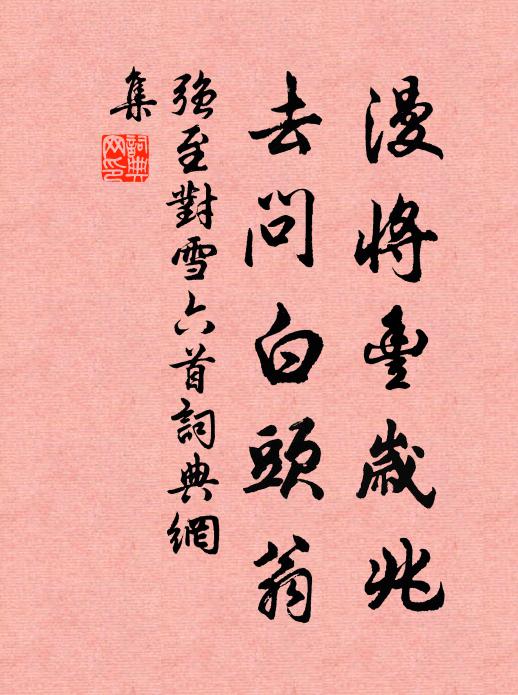 漫將豊歲兆
去問白頭翁
強至對雪六首詞典網
集
詞典
网印